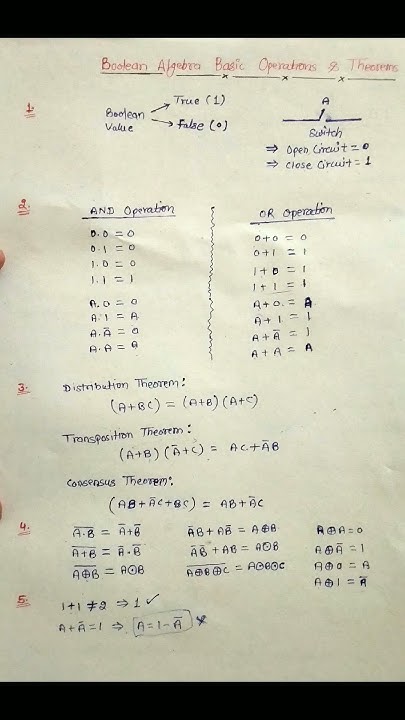 Boolean Algebra Basic Operations & Theorems
1.
Boolean Value
True (1)
False (0)
A
Switch
⇒ Open Circuit = 0
⇒ Close Circuit = 1
2.
AND Operation
0.0 = 0
0.1 = 0
1.0 = 0
1.1 = 1
A.0 = 0
A.1 = A
A.Ā = 0
A.A = A
OR Operation
0+0 = 0
0+1 = 1
1+0 = 1
1+1 = 1
A+0 = A
A+1 = 1
A+Ā = 1
A+A = A
3.
Distribution Theorem:
(A+BC) = (A+B) (A+C)
Transposition Theorem:
(A+B) (Ā+C) = AC+ĀB
Consensus Theorem:
(AB+ĀC+BC) = AB+ĀC
4.
A̅.̅B̅ = Ā+B̅
A̅+̅B̅ = Ā.B̅
A̅⊕̅B̅ = A⊙B
ĀB+AB̅ = A⊕B
ĀB̅+AB = A⊙B
A̅⊕̅B̅⊕̅C̅ = A⊙B⊙C
A⊕A=0
A⊕Ā = 1
A⊕0 = A
A⊕1 = Ā
5.
1+1 ≠ 2 ⇒ 1 ✓
A+Ā=1 ⇒ A=1-Ā